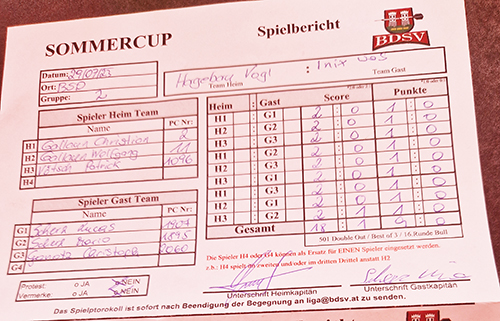 SOMMERCUP
Spielbericht
BDSV
Datum: 29/07/23
Ort: BSD
Gruppe: 2
Vogl : Inix
Team Heim Team Gast
Spieler Heim Team
Name PC Nr.
H1 Christian 2
H2 Wolfgang 11
H3 Patrick 1096
H4
Spieler Gast Team
Name PC Nr.
G1 Lucas 1904
G2 Mario 1895
G3 Christoph 2060
G4
Heim : Gast Score Punkte
H1 : G1 2 : 0 1 : 0
H2 : G2 2 : 0 1 : 0
H3 : G3 2 : 0 1 : 0
H1 : G2 2 : 0 1 : 0
H2 : G3 2 : 0 1 : 0
H3 : G1 2 : 0 1 : 0
H1 : G3 2 : 0 1 : 0
H2 : G1 2 : 1 1 : 0
H3 : G2 2 : 0 1 : 0
Gesamt 18 : 1 9 : 0
501 Double Out / Best of 3 / 16 Runde Bull
Die Spieler H4 oder G4 können als Ersatz für EINEN Spieler eingesetzt werden.
z.b.: H4 spielt im zweiten und oder im dritten Drittel anstatt H2
Protest: o JA o NEIN
Vermerke: o JA o NEIN
Unterschrift Heimkapitän
Unterschrift Gastkapitän
Das Spielprotokoll ist sofort nach Beendigung der Begegnung an liga@bdsv.at zu senden.